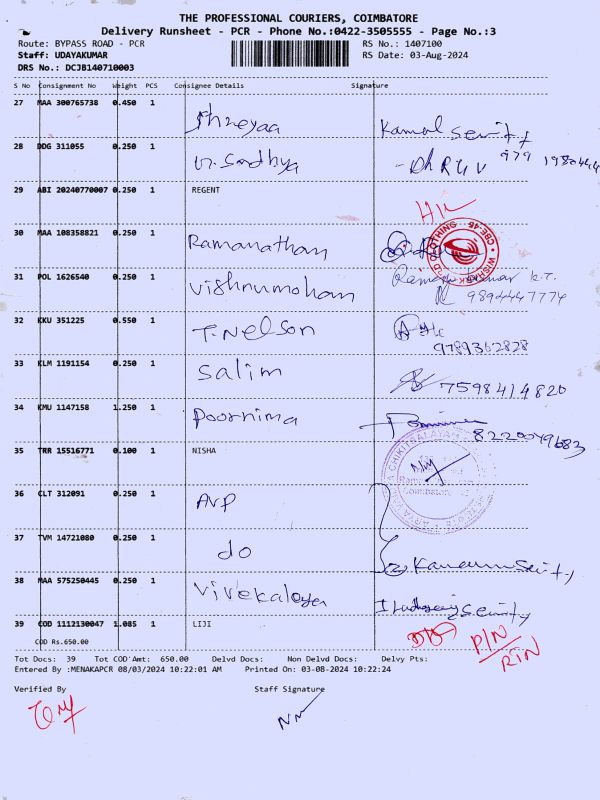 THE PROFESSIONAL COURIERS, COIMBATORE
Delivery Runsheet - PCR - Phone No.:0422-3505555 - Page No.:3
Route: BYPASS ROAD - PCR RS No.: 1407100
Staff: UDAYAKUMAR RS Date: 03-Aug-2024
DRS No.: DCJB140710003
S No Consignment No Weight PCS Consignee Details Signature
27 MAA 300765738 0.450 1 Shreyaa Kamal
28 DDG 311055 0.250 1 Sandhya DHRUV 979
29 ABI 20240770007 0.250 1 REGENT
30 MAA 108358821 0.250 1 Ramanathan
31 POL 1626540 0.250 1 Vishnumohan K.T.
9894447774
32 KKU 351225 0.550 1 T. Nelson
9789362828
33 KLM 1191154 0.250 1 Salim 7598414820
34 KMU 1147158 1.250 1 Poornima 8220049683
35 TRR 15516771 0.100 1 NISHA
36 CLT 312091 0.250 1 AVP
37 TVM 14721080 0.250 1 do
38 MAA 575250445 0.250 1 Vivekalaya
39 COD 1112130047 1.085 1 LIJI
COD Rs.650.00 P/N
RTN
Tot Docs: 39 Tot COD Amt: 650.00 Delvd Docs: Non Delvd Docs: Delvy Pts:
Entered By :MENAKAPCR 08/03/2024 10:22:01 AM Printed On: 03-08-2024 10:22:24
Verified By Staff Signature